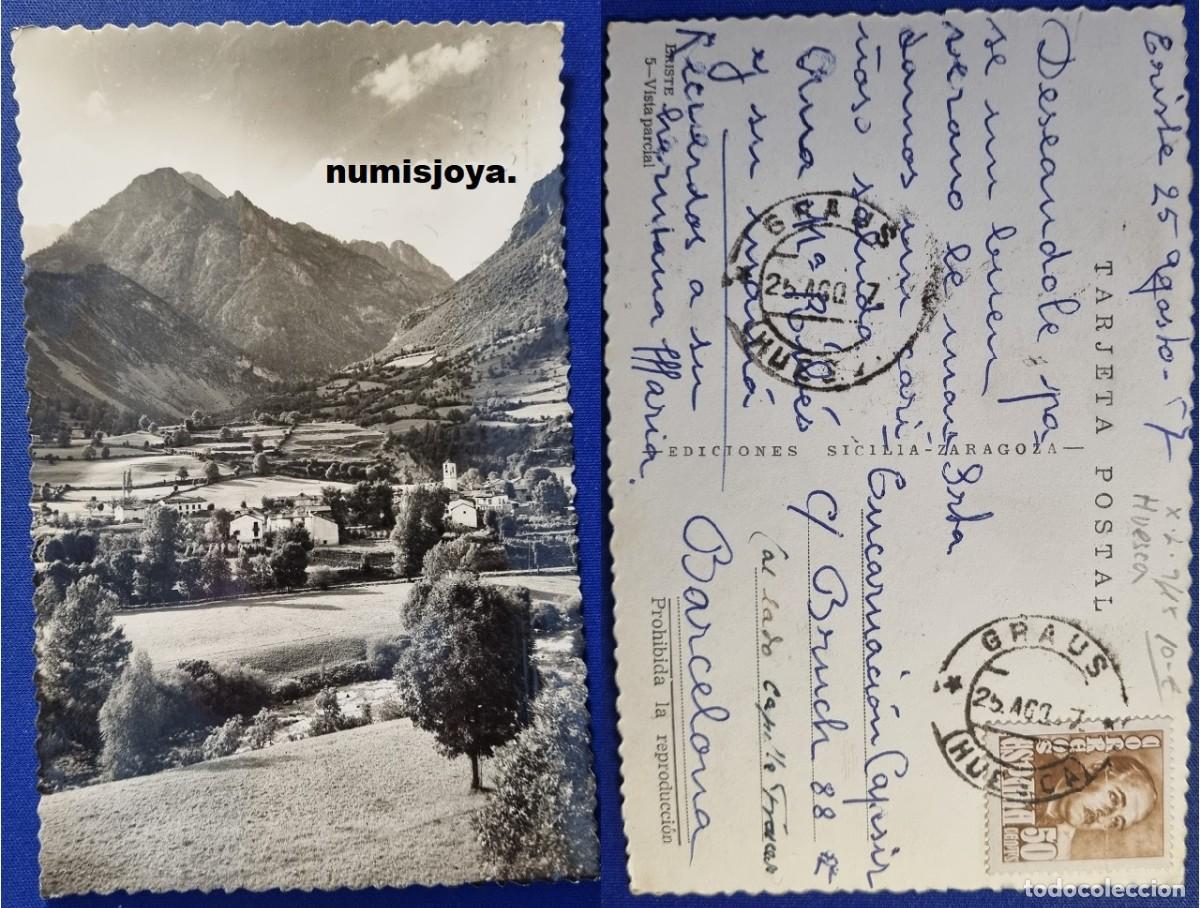 numisjoya.
Eriste 25 agosto-57
Deseandole pa
se un buen
verano le man
damos un cari
ñoso saludo
Ana Mª Ribés
y su mamá
Recuerdos a su
hermana María.
ERISTE
5—Vista parcial
TARJETA POSTAL
EDICIONES SICILIA-ZARAGOZA
Prohibida la reproducción
Srta
Encarnación
C/ Bruch 88
(al lado
Barcelona
Huesca
10-€
GRAUS
25 AGO 7
(HUESCA)
GRAUS
25 AGO 7
(HUESCA)
CORREOS
ESPAÑA
50
CENTIMOS
todocoleccion